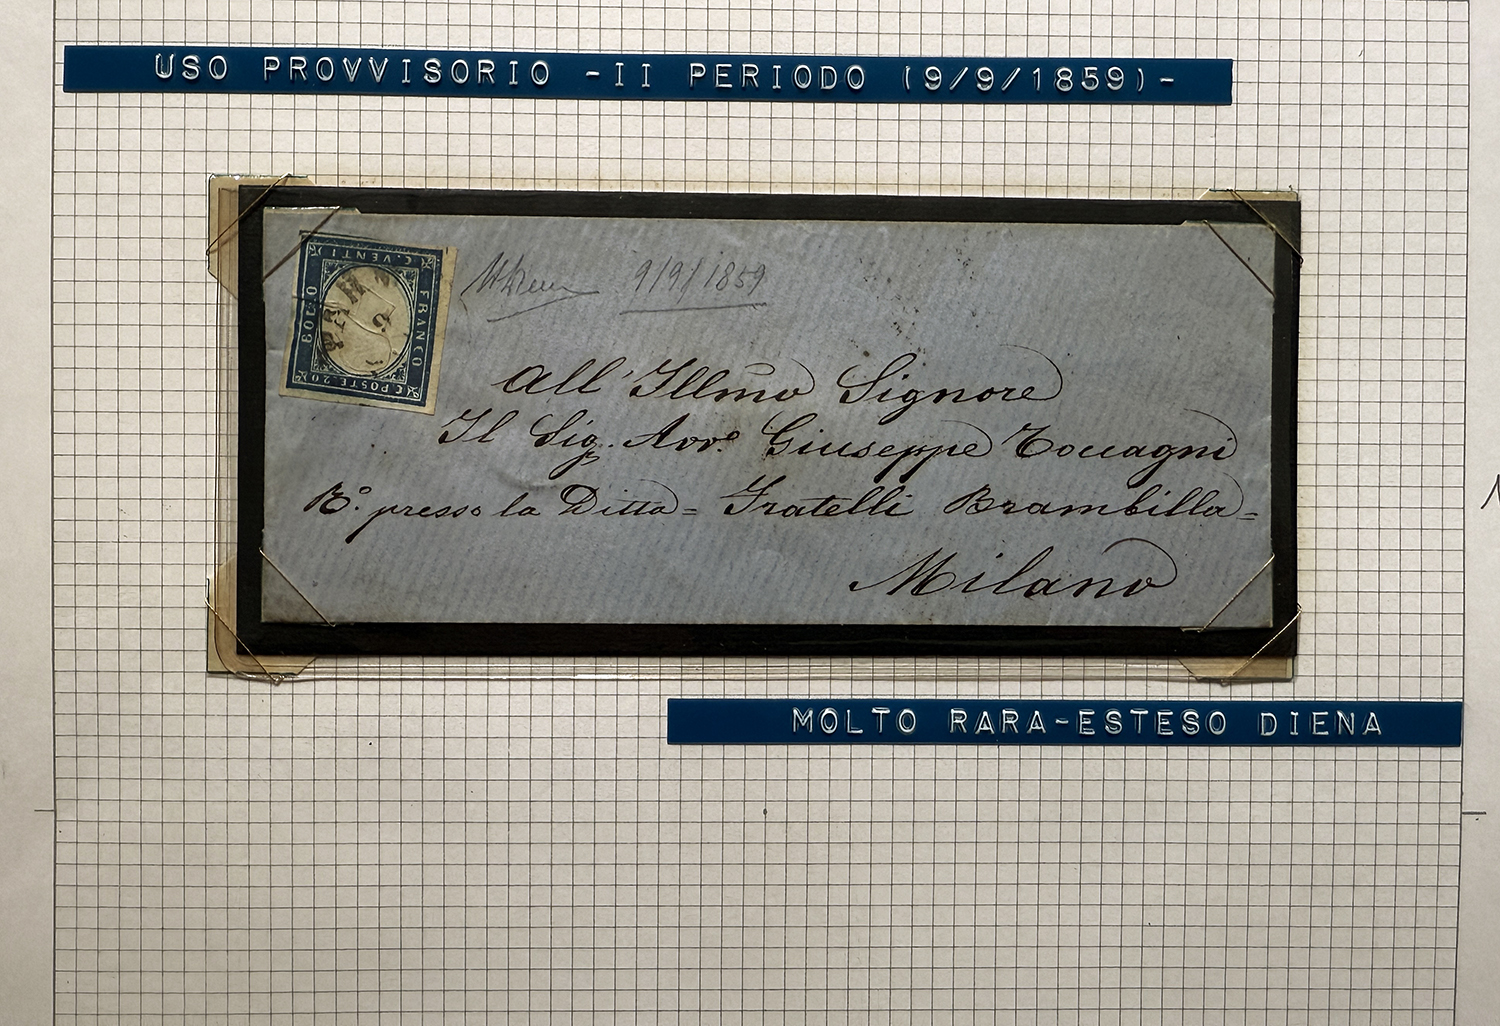 USO PROVVISORIO -II PERIODO (9/9/1859)-
C. VENTI
FRANCO
BOLLO
C. POSTE. 20
9/9/1859
All' Illmo Signore
Il Sig. Avvo Giuseppe Toccagni
Bo. presso la Ditta = Fratelli Brambilla =
Milano
MOLTO RARA-ESTESO DIENA